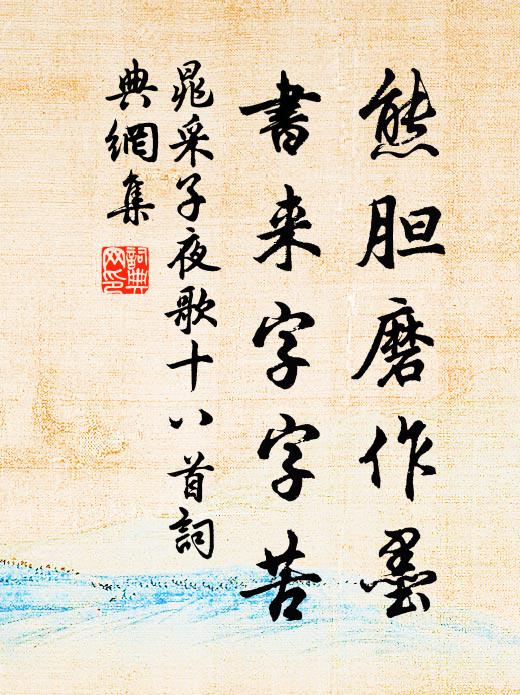 熊胆磨作墨
書来字字苦
晁采子夜歌十八首詞
典網集
詞典
网印